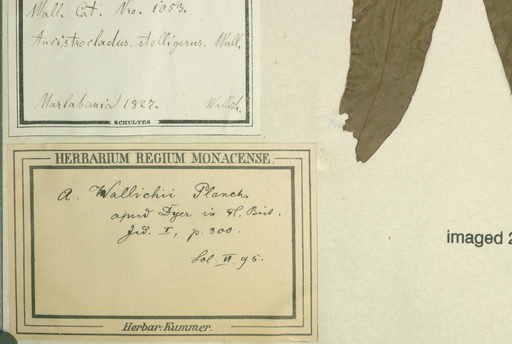 Wall. Cat. Nro. 1053.
Ancistrocladus stelligerus. Wall.
Martabania 1827. Wallich.
SCHULTES
HERBARIUM REGIUM MONACENSE.
A. Wallichii Planch.
apud Dyer in Fl. Brit.
Ind. I, p. 300.
Sol. VI. 95.
Herbar. Kummer.
imaged 2